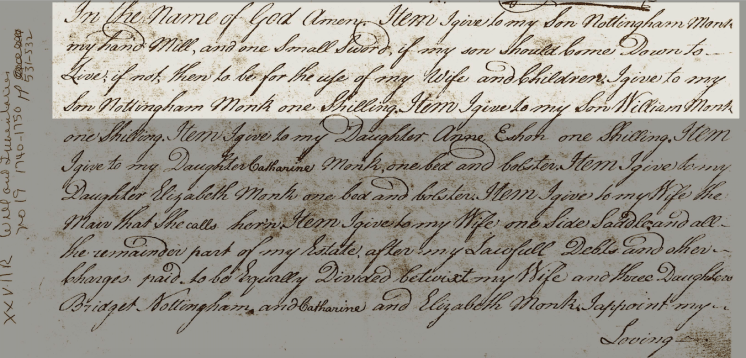 In the Name of God Amen. Item I give to my Son Nottingham Monk
my hand Mill, and one Small Sword, if my son Should Come Down to
Live, if not then to be for the use of my Wife and Children, I give to my
Son Nottingham Monk one Shilling. Item I give to my Son William Monk
one Shilling. Item I give to my Daughter Anne Eshon one Shilling. Item
I give to my Daughter Catharine Monk, one bed and bolster. Item I give to my
Daughter Elizabeth Monk one bed and bolster. Item I give to my Wife the
Mair that She calls hern. Item I give to my Wife one Side Saddle, and all
the remainder part of my Estate, after my Lacefull Debts and other
Charges paid, to be Equally Divided betwixt my Wife and three Daughters
Bridget Nottingham, and Catharine and Elizabeth Monk, I appoint my
Loving
XXVIIR Will and Inventories
no 19 1740-1750 pp
531-332